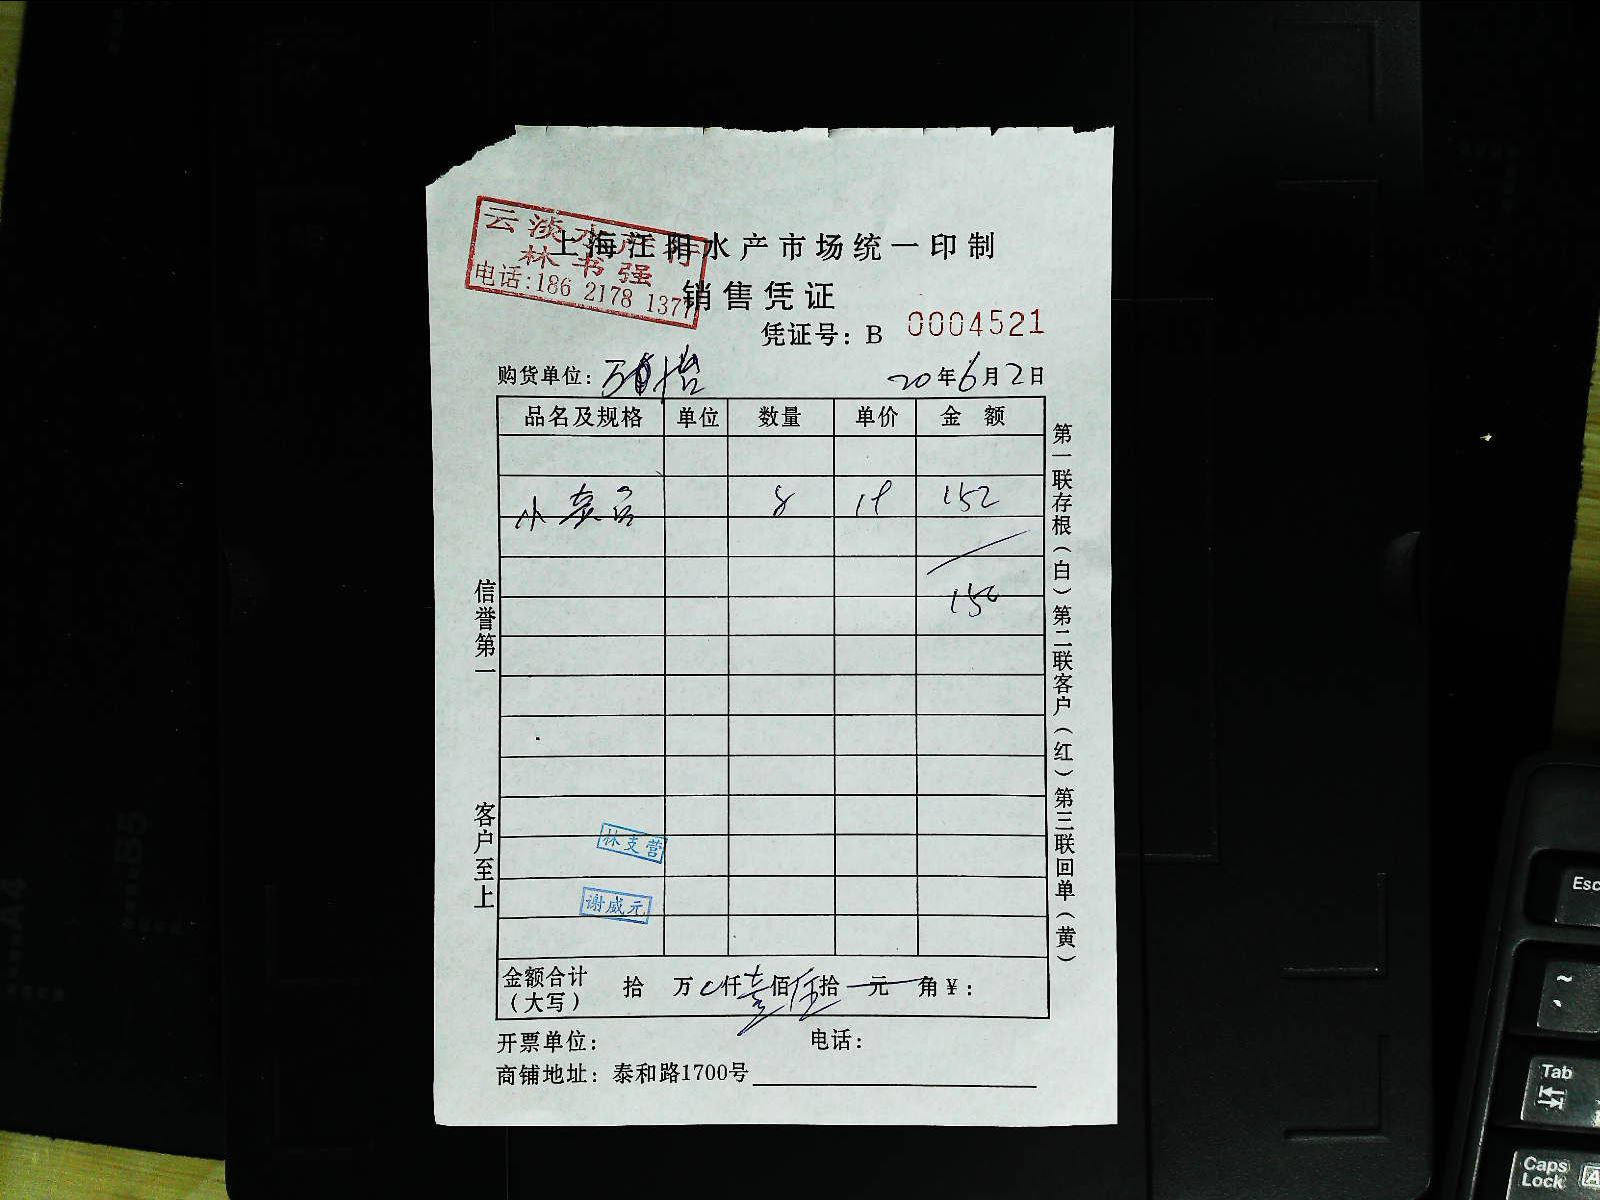 云淡水产行
林书强
电话:186 2178 1377
上海江阳水产市场统一印制
销售凭证
凭证号: B 0004521
购货单位:
20年6月2日
品名及规格 单位 数量 单价 金 额
小 8 19 152
150
金额合计（大写） 拾 万 仟壹佰伍拾 元 角 ¥:
开票单位: 电话:
商铺地址: 泰和路1700号
信誉第一 客户至上
第一联存根（白）第二联客户（红）第三联回单（黄）
林支营
谢威元
Esc
~
Tab
Caps Lock
A
A4
B5